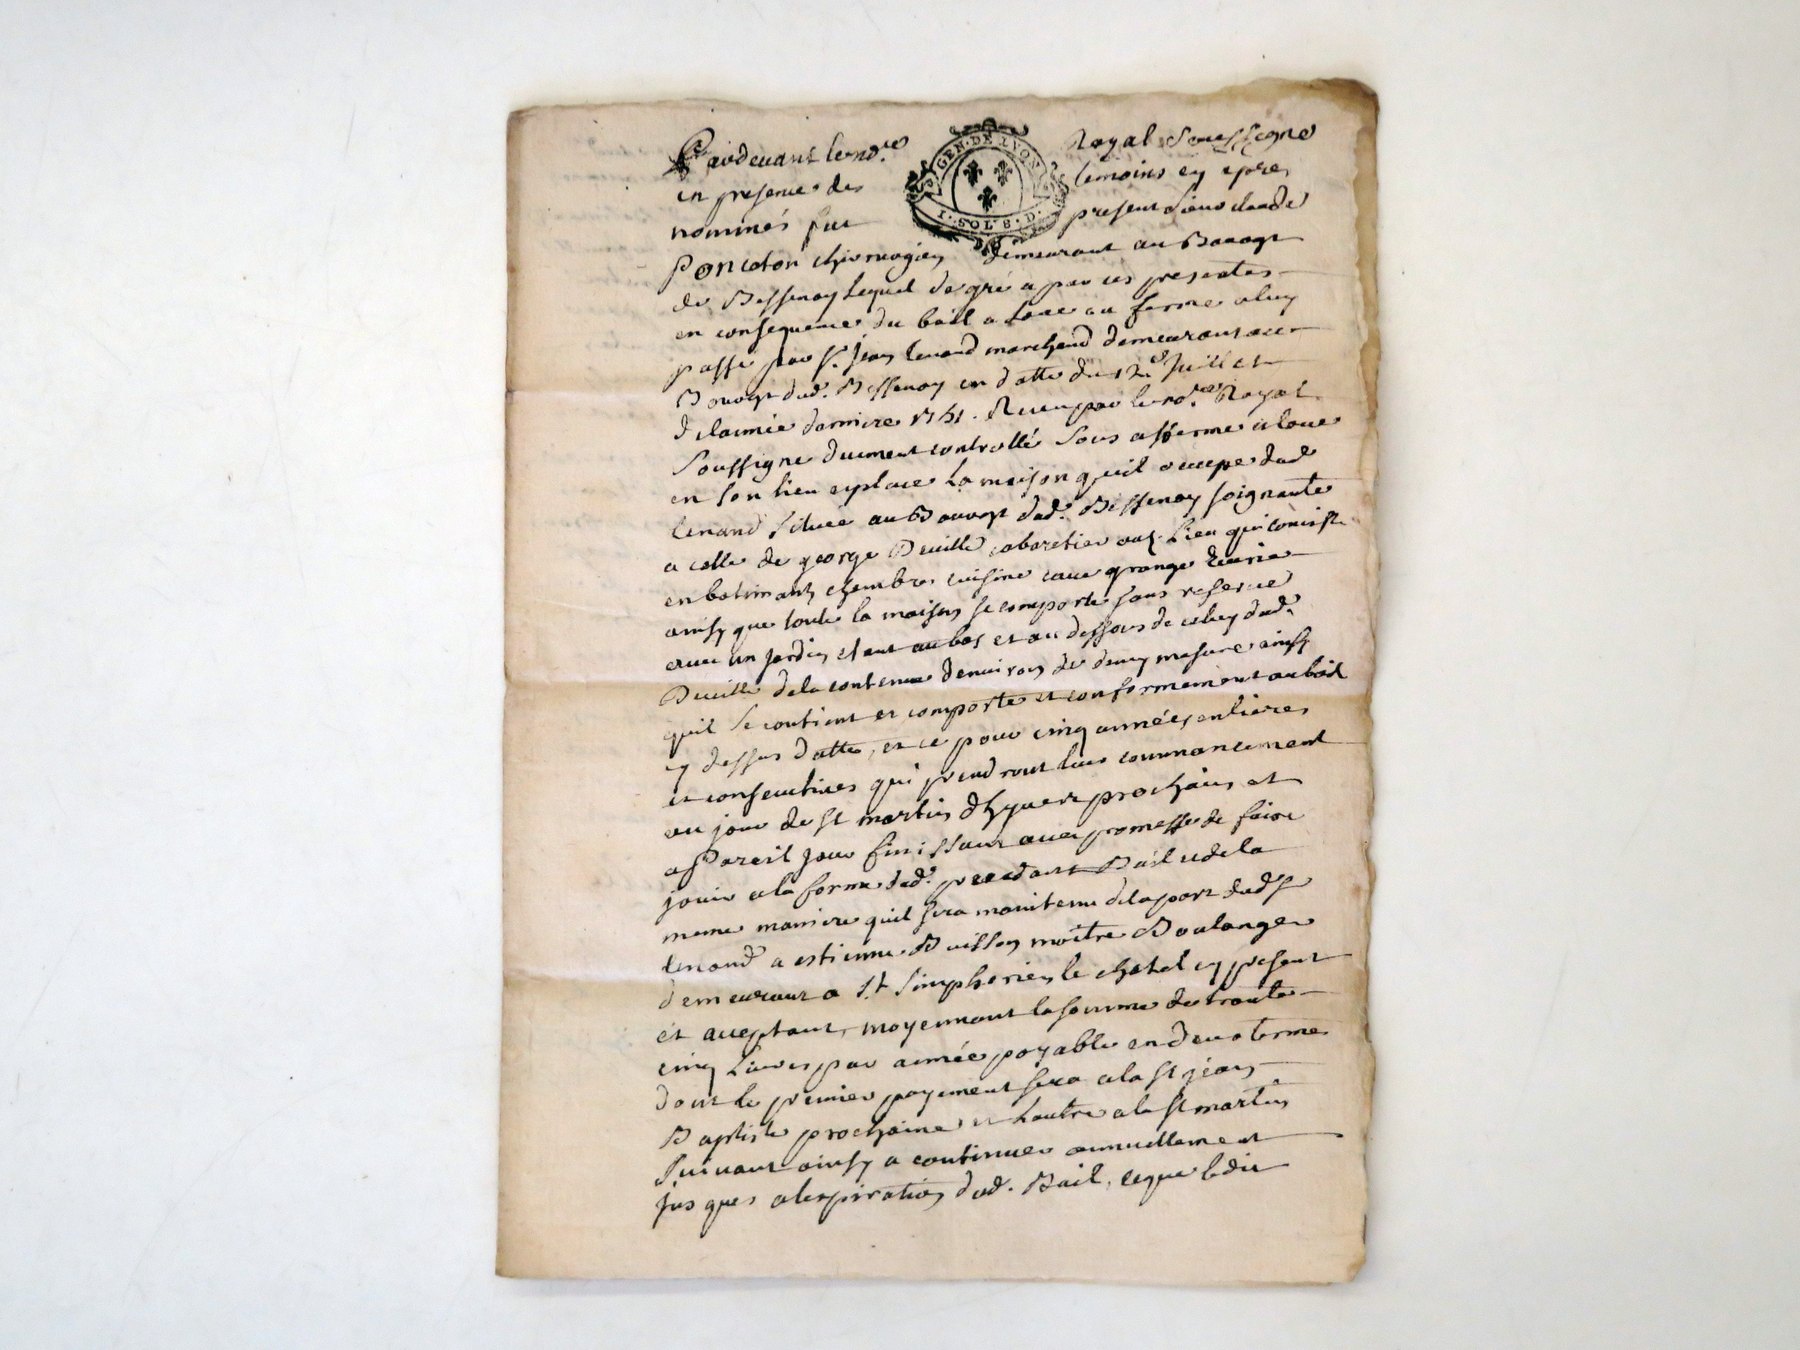 Pardevant le no.re Royal Soussigne
GEN · DE LYON
I · SOL 8 · D ·
en presence des temoins cy apres
nommés fut present Sieur claude
Poncoton chirurgien demeurant au Bourgt
de Bessenay Lequel de gré a par ces presentes
en consequence du bail a Loüe ou ferme a luy
passé par Sr. Jean Lenand marchand demeurant au
Bourgt dud. Bessenay en datte du 12e Juillet
de lannée derniere Recu par le no.re Royal
soussigne duement controllé sous afferme a loüe
en son lieu e place La maison quil occupe dud
Lenand Située au Bourgt dud. Bessenay joignante
a celle de george Deville cabaretier aud. Lieu qui consiste
en batimants chambres cuisine cave grange Ecurie
ainsy que toute la maison se comporte sans reserve
avec un jardin etant au bas et au dessous de celuy dud.
Deville de la contenue denviron de demy mesure ainsy
quil se contient et comporte et conformement au bail
cy dessus datté, et ce pour cinq années entieres
et consecutives qui prendront leur commancement
au jour de St martin dhyver prochain et
a Pareil jour finissant avec promesse de faire
jouir a la forme dud. precedant Bail et de la
meme maniere quil sera maintenu de la part dud Sr
Lenand a estienne Buisson maître Boulanger
demeurant a St. Simphorien le chatel cy present
et acceptant, moyennant la somme de trante
cinq Livres par année payable en deux termes
dont le premier payement sera a la St jean
Baptiste prochaine et Lautre a la St martin
suivant ainsy a continuer annuellement
jusques a lexpiration dud. Bail, ceque ledit